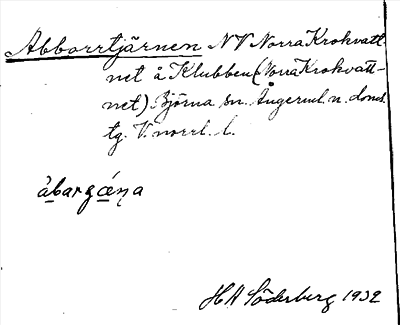 Abborrtjärnen NV Norra Krokvatt-
net å Klubben (Norra Krokvatt-
net). Björna sn. Ångerml. n. doms.
tg. V. norrl. l.
àbarǥǽṇa
H A Söderberg 1932